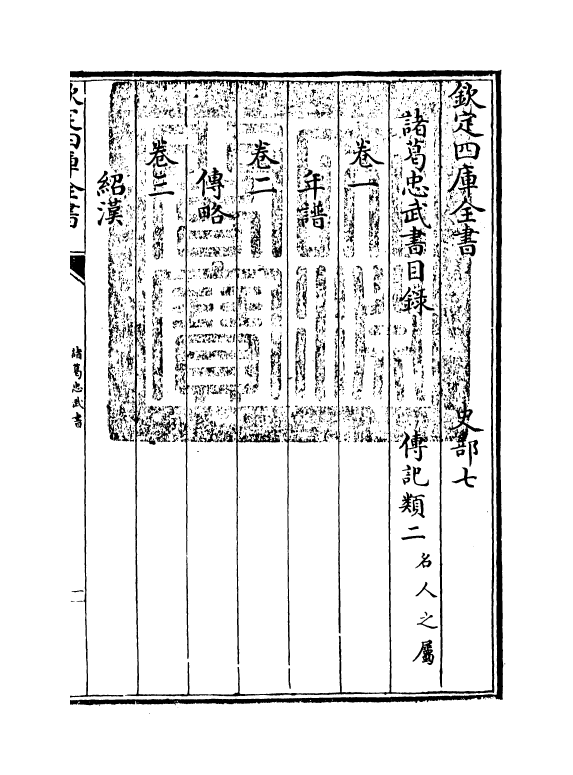 欽定四庫全書　史部七
諸葛忠武書目録　傳記類二名人之屬
卷一
年譜
卷二
傳略
卷三
紹漢
欽定四庫全書
諸葛忠武書
一